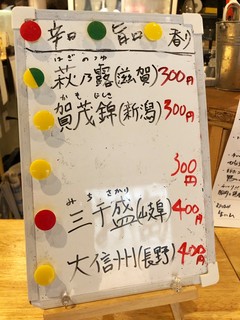 辛口 旨口 香り
はぎのつゆ
萩乃露(滋賀)300円
かもにしき
賀茂錦(新潟)300円
300円
みちさかり
三千盛(岐阜)400円
大信州(長野)400円